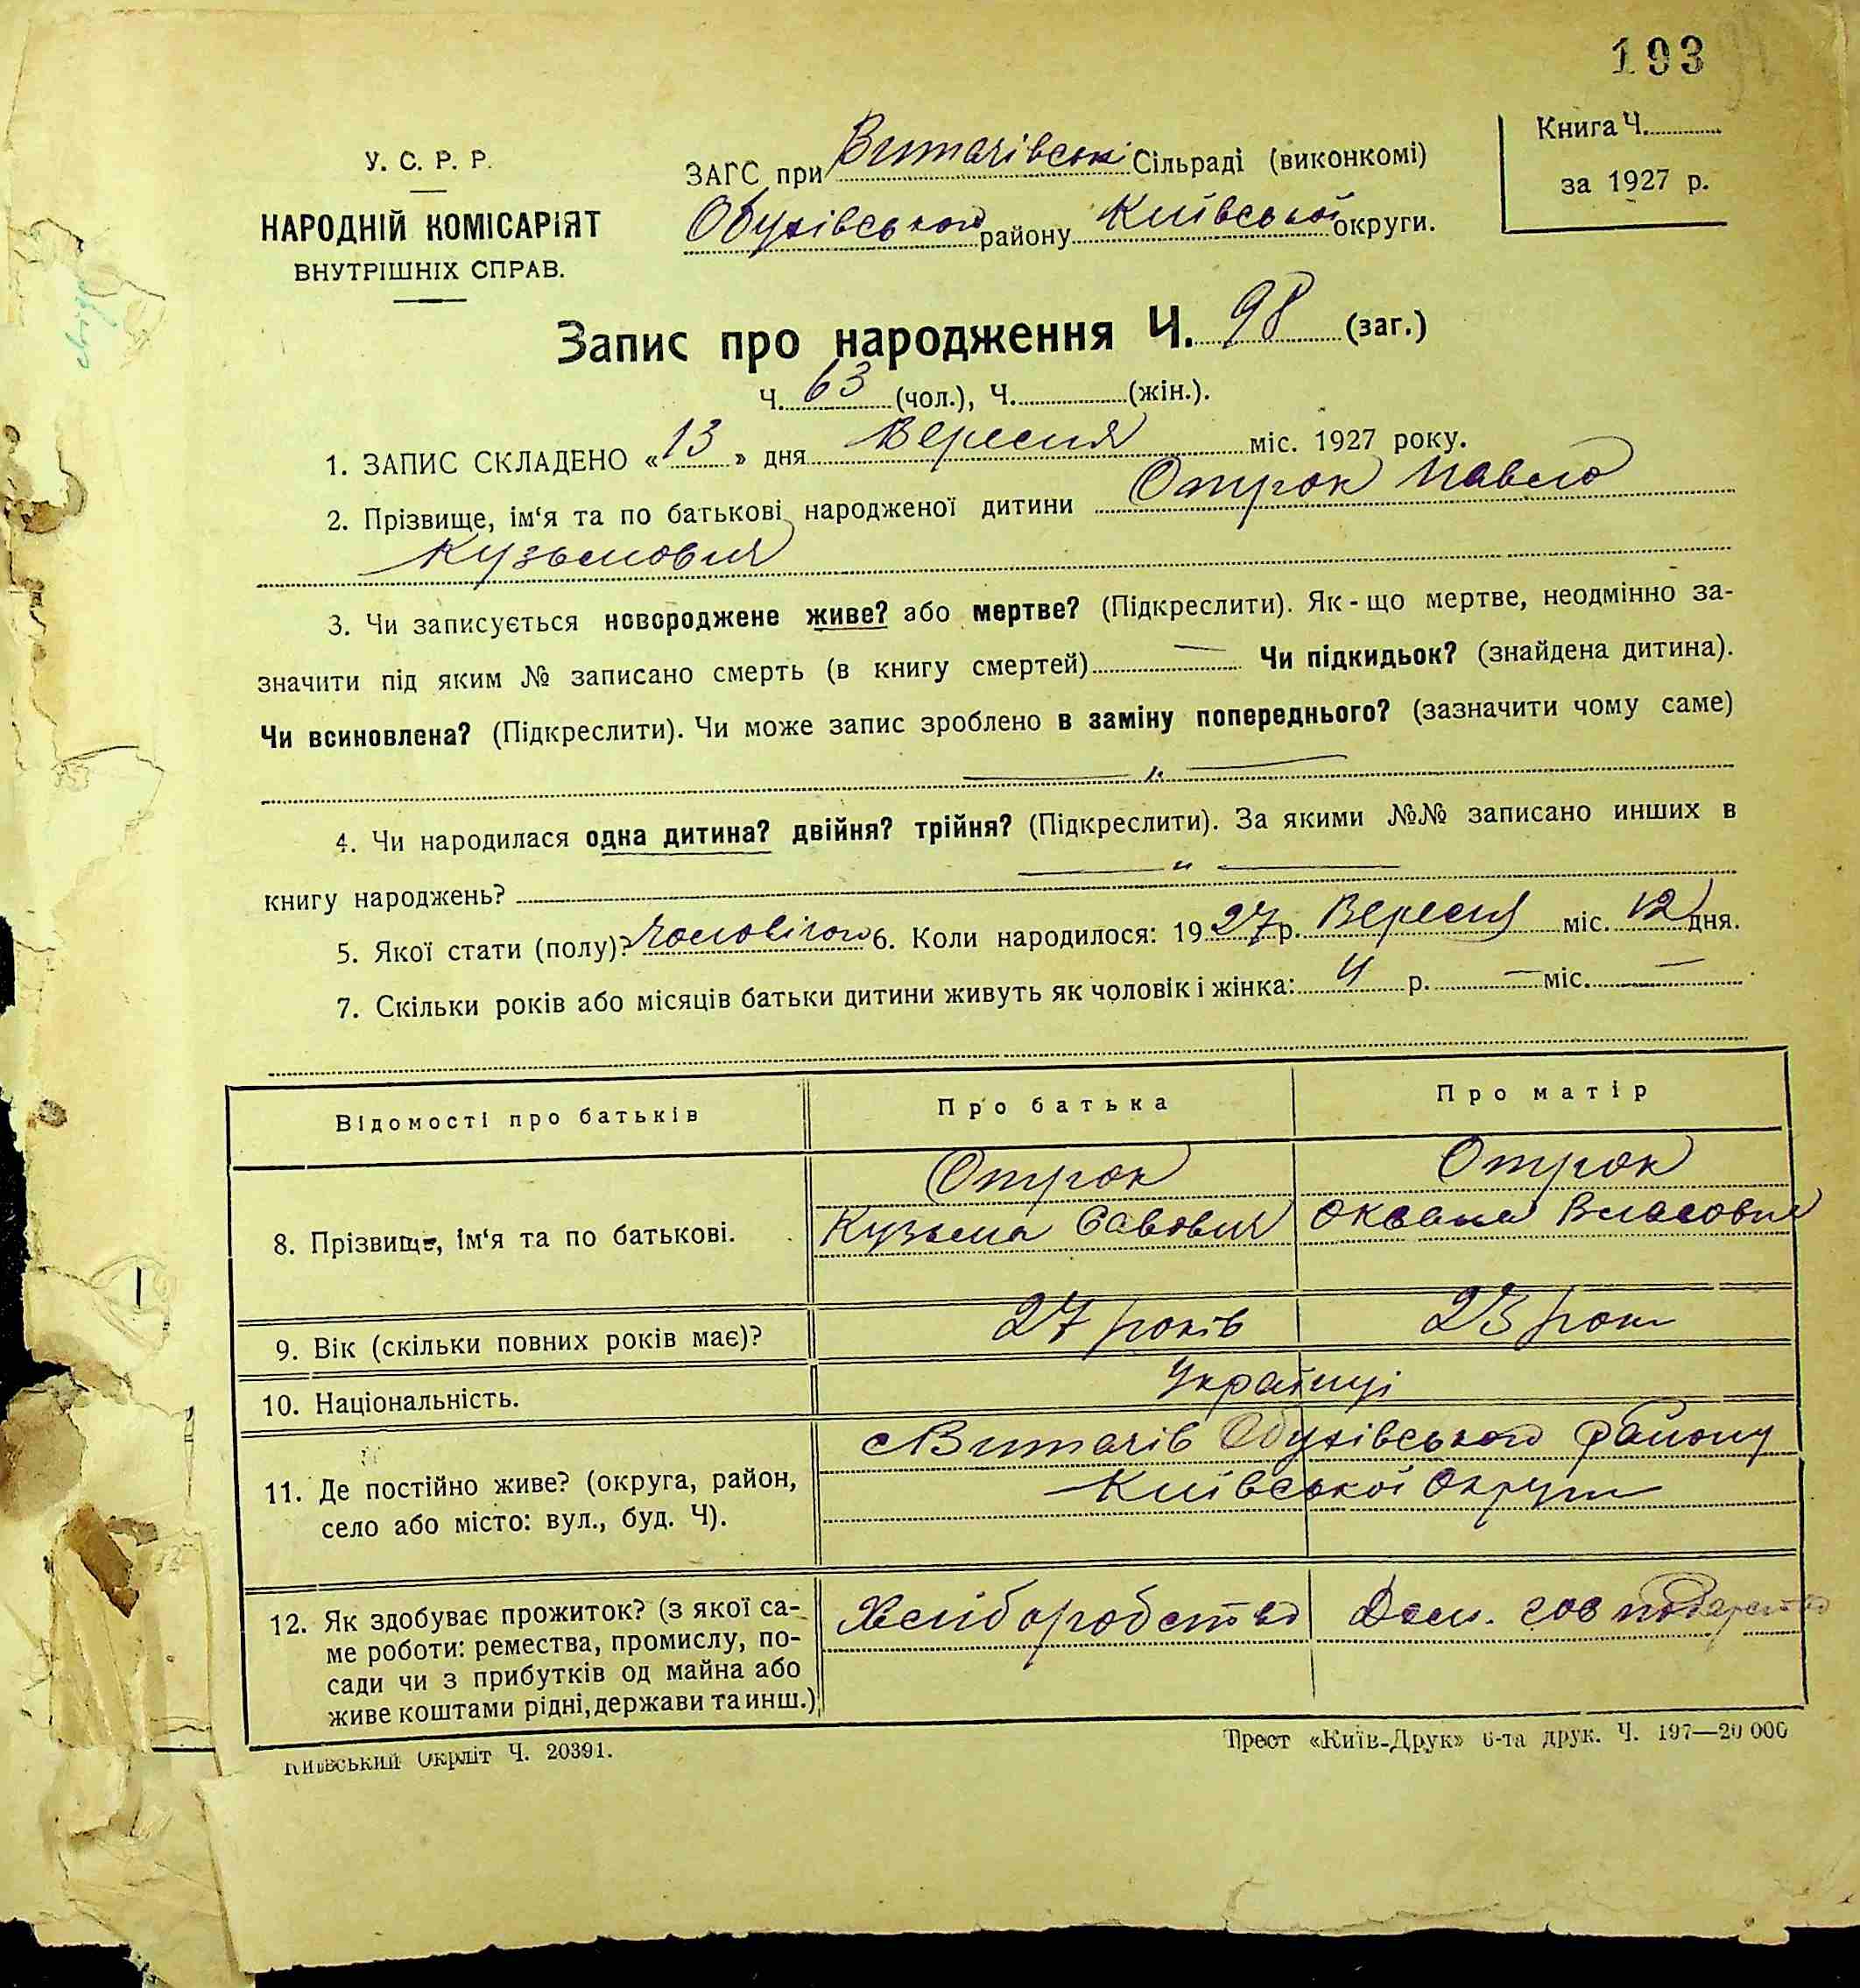 193
У. С. Р. Р.
НАРОДНІЙ КОМІСАРІЯТ
ВНУТРІШНІХ СПРАВ.
ЗАГС при Витачівські Сільраді (виконкомі)
Обухівського району Київської округи.
Книга Ч.
за 1927 р.
Запис про народження Ч. 98 (заг.)
Ч. 63 (чол.), Ч. (жін.).
1. ЗАПИС СКЛАДЕНО «13» дня Вересня міс. 1927 року.
2. Прізвище, ім‘я та по батькові народженої дитини Отрок Павло
Кузьмович
3. Чи записується новороджене живе? або мертве? (Підкреслити). Як-що мертве, неодмінно за-
значити під яким № записано смерть (в книгу смертей) — Чи підкидьок? (знайдена дитина).
Чи всиновлена? (Підкреслити). Чи може запис зроблено в заміну попереднього? (зазначити чому саме)
4. Чи народилася одна дитина? двійня? трійня? (Підкреслити). За якими №№ записано инших в
книгу народжень? — " —
5. Якої стати (полу)? Чоловічого 6. Коли народилося: 1927 р. Вересня міс. 12 дня.
7. Скільки років або місяців батьки дитини живуть як чоловік і жінка: 4 р. — міс. —
Відомості про батьків Про батька Про матір
8. Прізвище, ім‘я та по батькові. Отрок Отрок
Кузьма Савович Оксана Власовна
9. Вік (скільки повних років має)? 27 років 23 роки
10. Національність. Українці
11. Де постійно живе? (округа, район, с Витачів Обухівського району
село або місто: вул., буд. Ч). Київської Округи
12. Як здобуває прожиток? (з якої са- Хліборобство Дом. господарство
ме роботи: ремества, промислу, по-
сади чи з прибутків од майна або
живе коштами рідні, держави та инш.)
Київський Окрліт Ч. 20391.
Трест «Київ-Друк» 6-та друк. Ч. 197—20 000